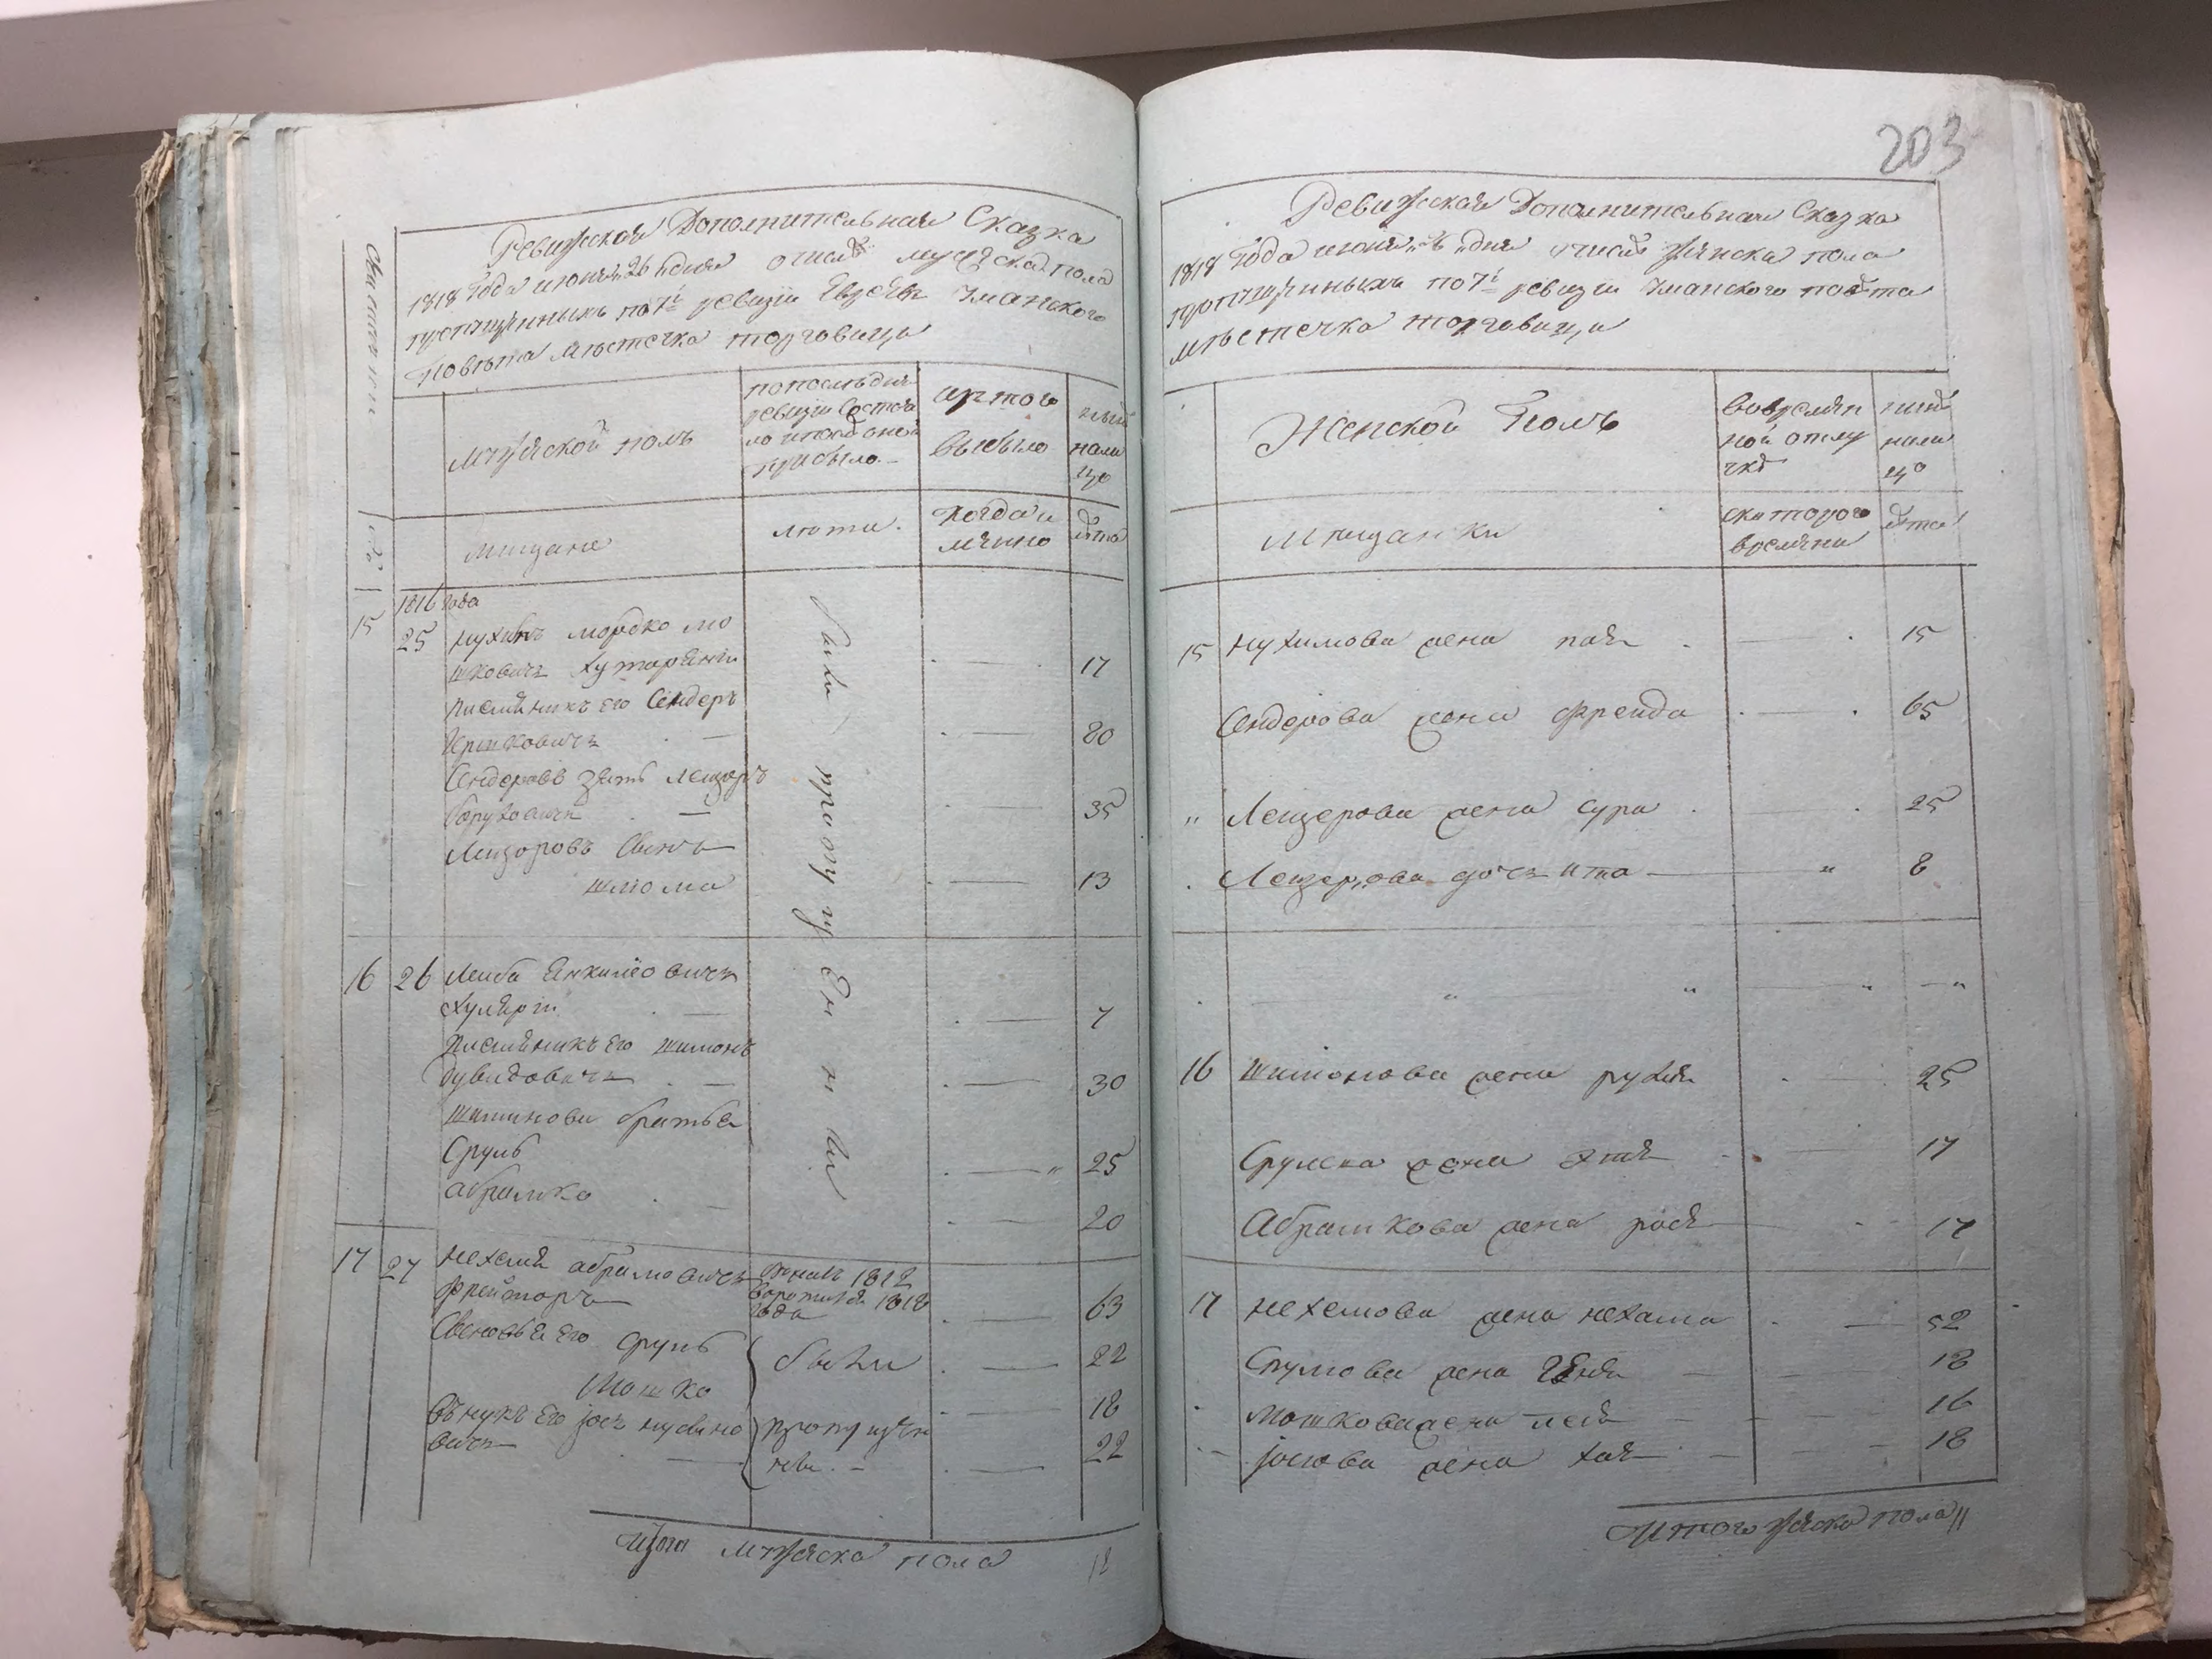 203
Ревижская Дополнительная Сказка
1818 года июня 26 дня о числе мужска пола
пропущенныхъ по 7й ревизiи Евреевъ Уманского
Повѣта Мѣстечка торговица
Мужской полъ
по последней
ревизiи состоя
ло и после оной
прибыло
изъ того
выбыло
ныне
нали
цо
мещане
лета
Когда и
лѣта
1816 года
15 25 нухимъ мордко мо
шковичъ 17
писменикъ его Сендеръ
Ершковичъ 80
Сендеровъ зять Лейзоръ
Боруховичъ 35
Лейзоровъ Сынъ
шлюма 13
были пропущенны
16 26 Лейба Янкилiовичъ
7
Писменикъ его шимонъ
Дувидовичъ 30
шимонови братья
Сруль 25
абрамко 20
17 27 нехемя абрамовичъ 1812
воротился 1818
года 63
Сыновья его сруль 22
Мошко 18
были
внукъ его iосъ нусино
вичъ 22
пропущен
ны
мужска пола 18
Ревижская Дополнительная Сказка
1818 года июня дня о числе женска пола
пропущенныхъ по 7й ревизiи Уманского повѣта
мѣстечка торговица
Женской Полъ
во времен
ной отлу
чке
ныне
нали
цо
мещанки
с которого
времяни
лѣта
15 нухимова жена пая 15
Сендерова жена фрейда 65
Лейзерова жена сура 25
Лейзерова дочъ ита 8
16 шимонова жена рухля 25
Срулева жена этя 17
Абрамкова жена рося 17
17 нехемова жена нехама 52
Срулова жена 18
мошкова жена лея 16
iосiова жена хая 18
Итого женска пола 11